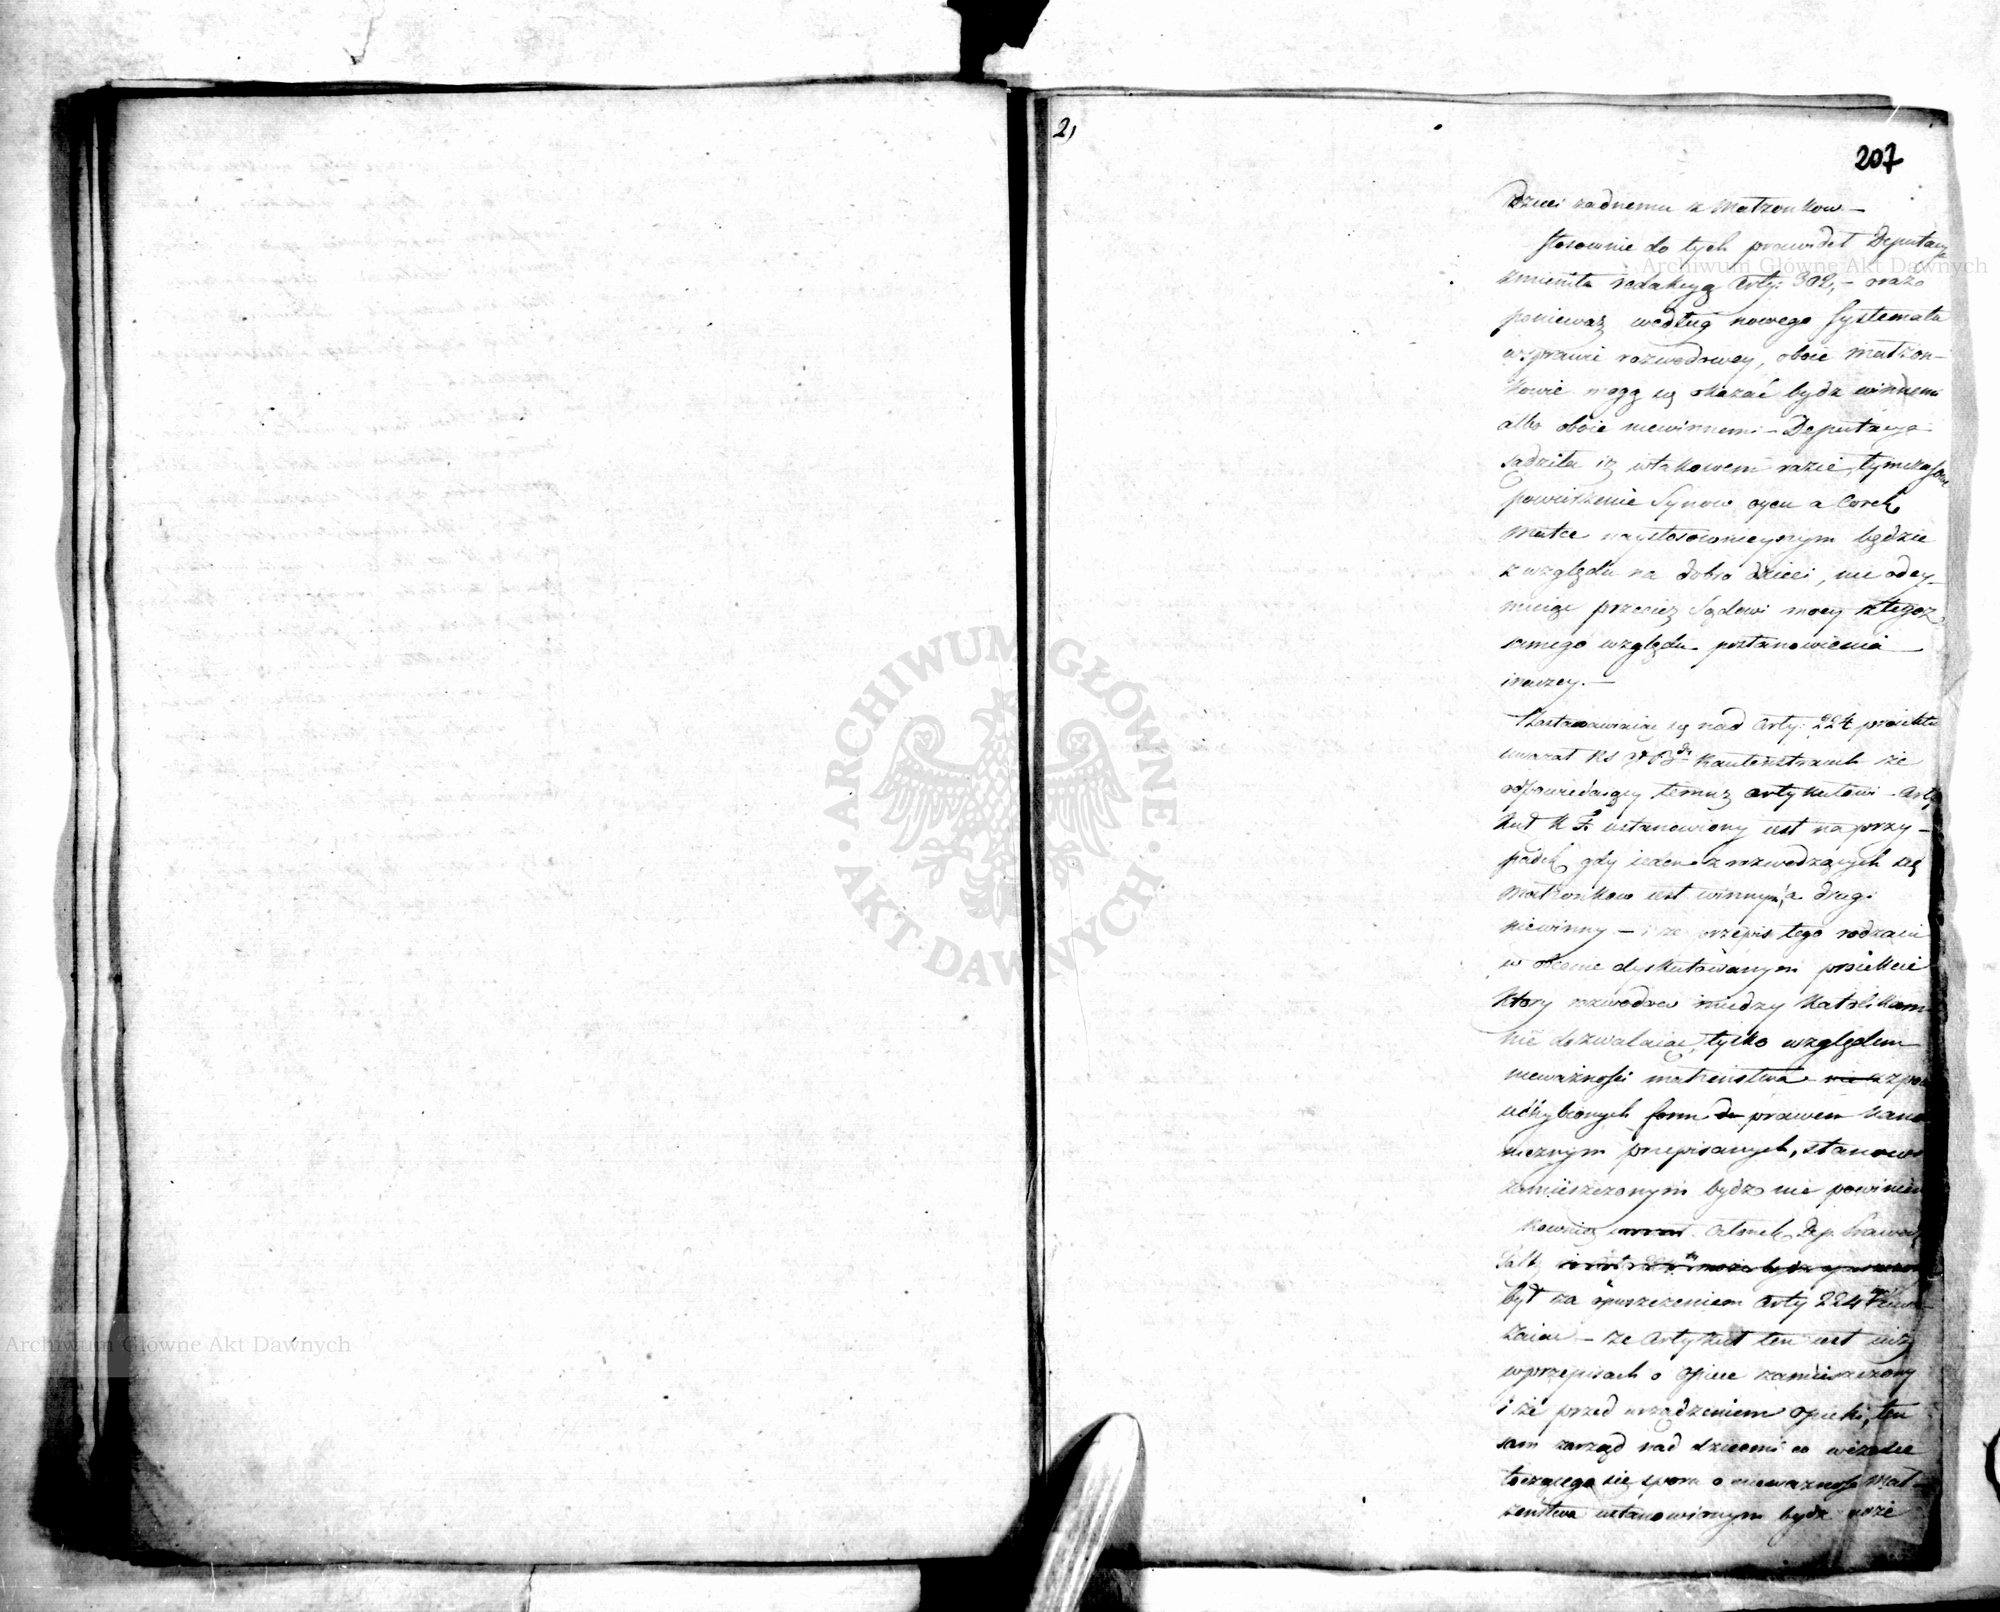 2,
207
Dzieci żadnemu z Małżonkow —
Stosownie do tych prawideł Deputacya
zmieniła redakcyą Arty: 302, — oraz
ponieważ według nowego Systematu
w sprawie rozwodowey, oboie małżon-
kowie mogą się okazać bydź winnemi
albo oboie niewinnemi — Deputacya
sądziła iż w takowem razie, tymczasowe
powierzenie Synow oycu a Corek
Matce naystosownieyszym będzie
z względu na dobro dzieci, nie odey-
muiąc przecież Sądowi mocy z tegoż
samego względu postanowienia
inaczey. —
Zastanawiaiąc się nad Arty: 224 proiektu
uważał Ks
odpowiedaiący temuż artykułowi — Arty
kuł K F. ustanowiony iest na przy-
padek gdy ieden z rozwodzących się
Małżonkow iest winnym, a drugi
niewinny — i że przepis tego rodzaiu
w obecnie dyskutowanym proiekcie
ktory rozwodow między Katolikami
nie dozwalaiąc, tylko względem
nieważności małżeństwa
uchybionych form prawem kano
nicznym przepisanych, stanowi
zamieszczonym bydź nie powinien
Rownież Członek Dep. Prawod
był za opuszczeniem Arty 224
żaiąc — że Artykuł ten iest iuż
w przepisach o Opiece zamieszczony
i że przed urządzeniem Opieki, ten
sam zarząd nad dziećmi co w czasie
toczącego się sporu o nieważność Mał-
żeństwa ustanowionym bydź może
Archiwum Główne Akt Dawnych
Archiwum Główne Akt Dawnych
ARCHIWUM GŁÓWNE · AKT DAWNYCH ·